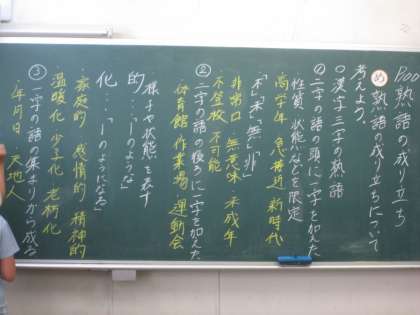 P100 熟語の成り立ち
め 熟語の成り立ちについて
考えよう。
○漢字三字の熟語
① 二字の語の頭に一字を加えた
性質、状態などを限定
高学年 急接近 新時代
「不」「未」「無」「非」
非常口 無意味 未成年
不登校 不可能
② 二字の語の後ろに一字を加えた
体育館 作業場 運動会
様子や状態を表す
的…「~のような」
化…「~のようになる」
家庭的 感情的 精神的
温暖化 少子化 老朽化
③ 一字の語の集まりから成る
年月日 天地人